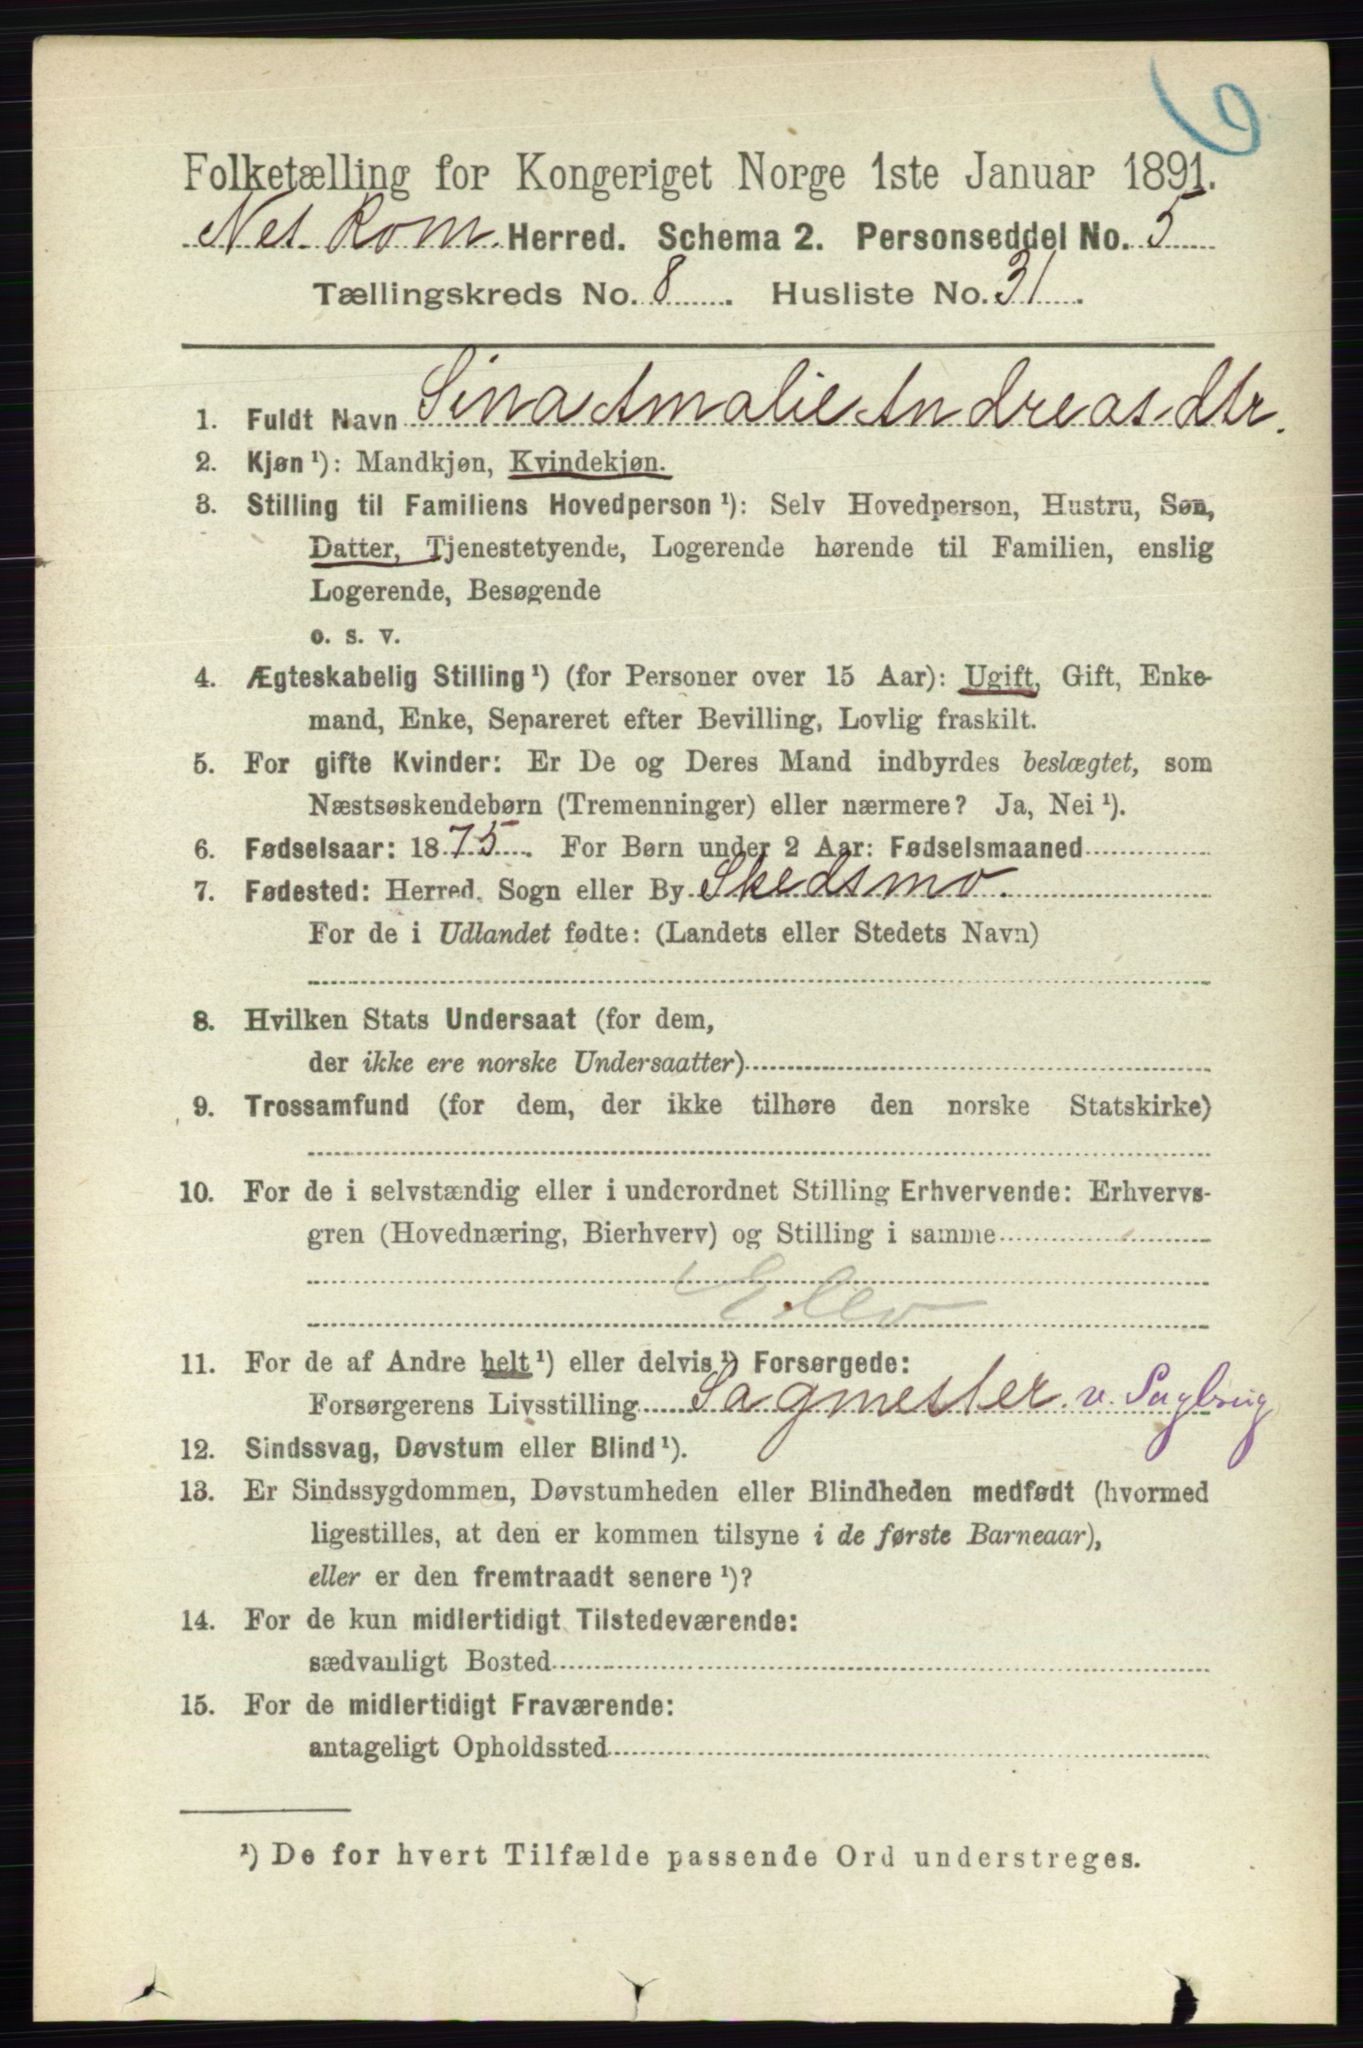 6
Folketælling for Kongeriget Norge 1ste Januar 1891.
Nes Rom. Herred. Schema 2. Personseddel No. 5
Tællingskreds No. 8. Husliste No. 31.
1. Fuldt Navn Sina Amalie Andreasdtr.
2. Kjøn ¹): Mandkjøn, Kvindekjøn.
3. Stilling til Familiens Hovedperson ¹): Selv Hovedperson, Hustru, Søn,
Datter, Tjenestetyende, Logerende hørende til Familien, enslig
Logerende, Besøgende
o. s. v.
4. Ægteskabelig Stilling ¹) (for Personer over 15 Aar): Ugift, Gift, Enke-
mand, Enke, Separeret efter Bevilling, Lovlig fraskilt.
5. For gifte Kvinder: Er De og Deres Mand indbyrdes beslægtet, som
Næstsøskendebørn (Tremenninger) eller nærmere? Ja, Nei ¹).
6. Fødselsaar: 1875. For Børn under 2 Aar: Fødselsmaaned
7. Fødested: Herred, Sogn eller By Skedsmo.
For de i Udlandet fødte: (Landets eller Stedets Navn)
8. Hvilken Stats Undersaat (for dem,
der ikke ere norske Undersaatter)
9. Trossamfund (for dem, der ikke tilhøre den norske Statskirke)
10. For de i selvstændig eller i underordnet Stilling Erhvervende: Erhvervs-
gren (Hovednæring, Bierhverv) og Stilling i samme
Elev
11. For de af Andre helt ¹) eller delvis ¹) Forsørgede:
Forsørgerens Livsstilling Sagmester v. Sagbrug
12. Sindssvag, Døvstum eller Blind ¹).
13. Er Sindssygdommen, Døvstumheden eller Blindheden medfødt (hvormed
ligestilles, at den er kommen tilsyne i de første Barneaar),
eller er den fremtraadt senere ¹)?
14. For de kun midlertidigt Tilstedeværende:
sædvanligt Bosted
15. For de midlertidigt Fraværende:
antageligt Opholdssted
¹) De for hvert Tilfælde passende Ord understreges.